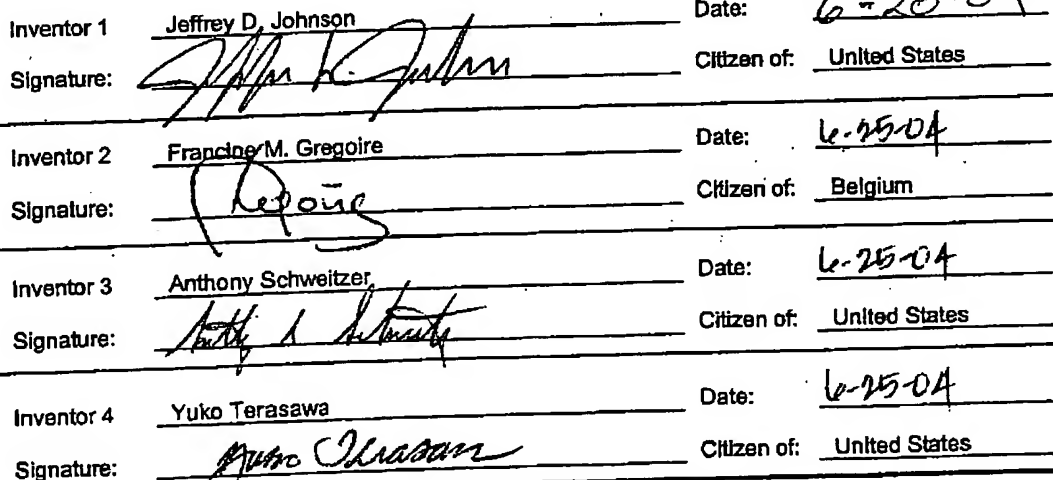 Inventor 1 Jeffrey D. Johnson Date:
Signature: Citizen of: United States
Inventor 2 Francine M. Gregoire Date: 6-25-04
Signature: Citizen of: Belgium
Inventor 3 Anthony Schweitzer Date: 6-25-04
Signature: Citizen of: United States
Inventor 4 Yuko Terasawa Date: 6-25-04
Signature: Yuko Terasawa Citizen of: United States